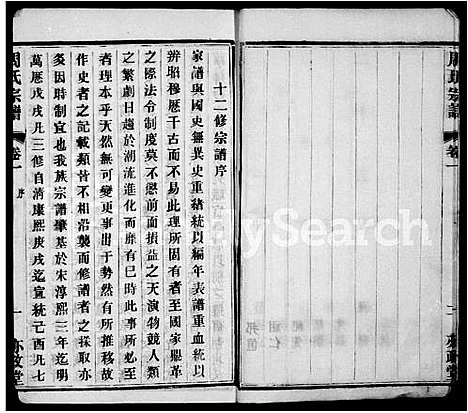 十二修宗譜序
家譜與國史無異史重緒統以編年表譜重血統以
辨昭穆歷千古而不易此理所固有者至國家鼎革
之際法令制度莫不懲前而損益之天演物競人類
之繁劇日趨於潮流進化而靡有已時此事所應有
者理本可大而可久時有變而變更事出于勢然有所推移故
作史者之記載類皆不相沿襲而修譜者之採取亦
多因時制宜也我族宗譜肇基於宋淳熙三年迄明
萬厯戊戌凡三修自清康熙庚戌迄宣統己酉凡七
周氏宗譜
卷一
序
一
亦政堂
周氏宗譜
卷一
二
亦政堂
MySearch
邦值